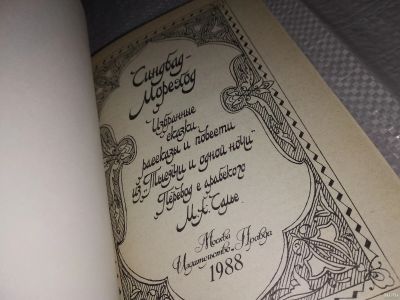 "Синдбад-
Мореход
Избранные
сказки
рассказы и повести
из „Тысячи и одной ночи"
Перевод с арабского
М.А. Салье
Москва
Издательство „Правда"
1988